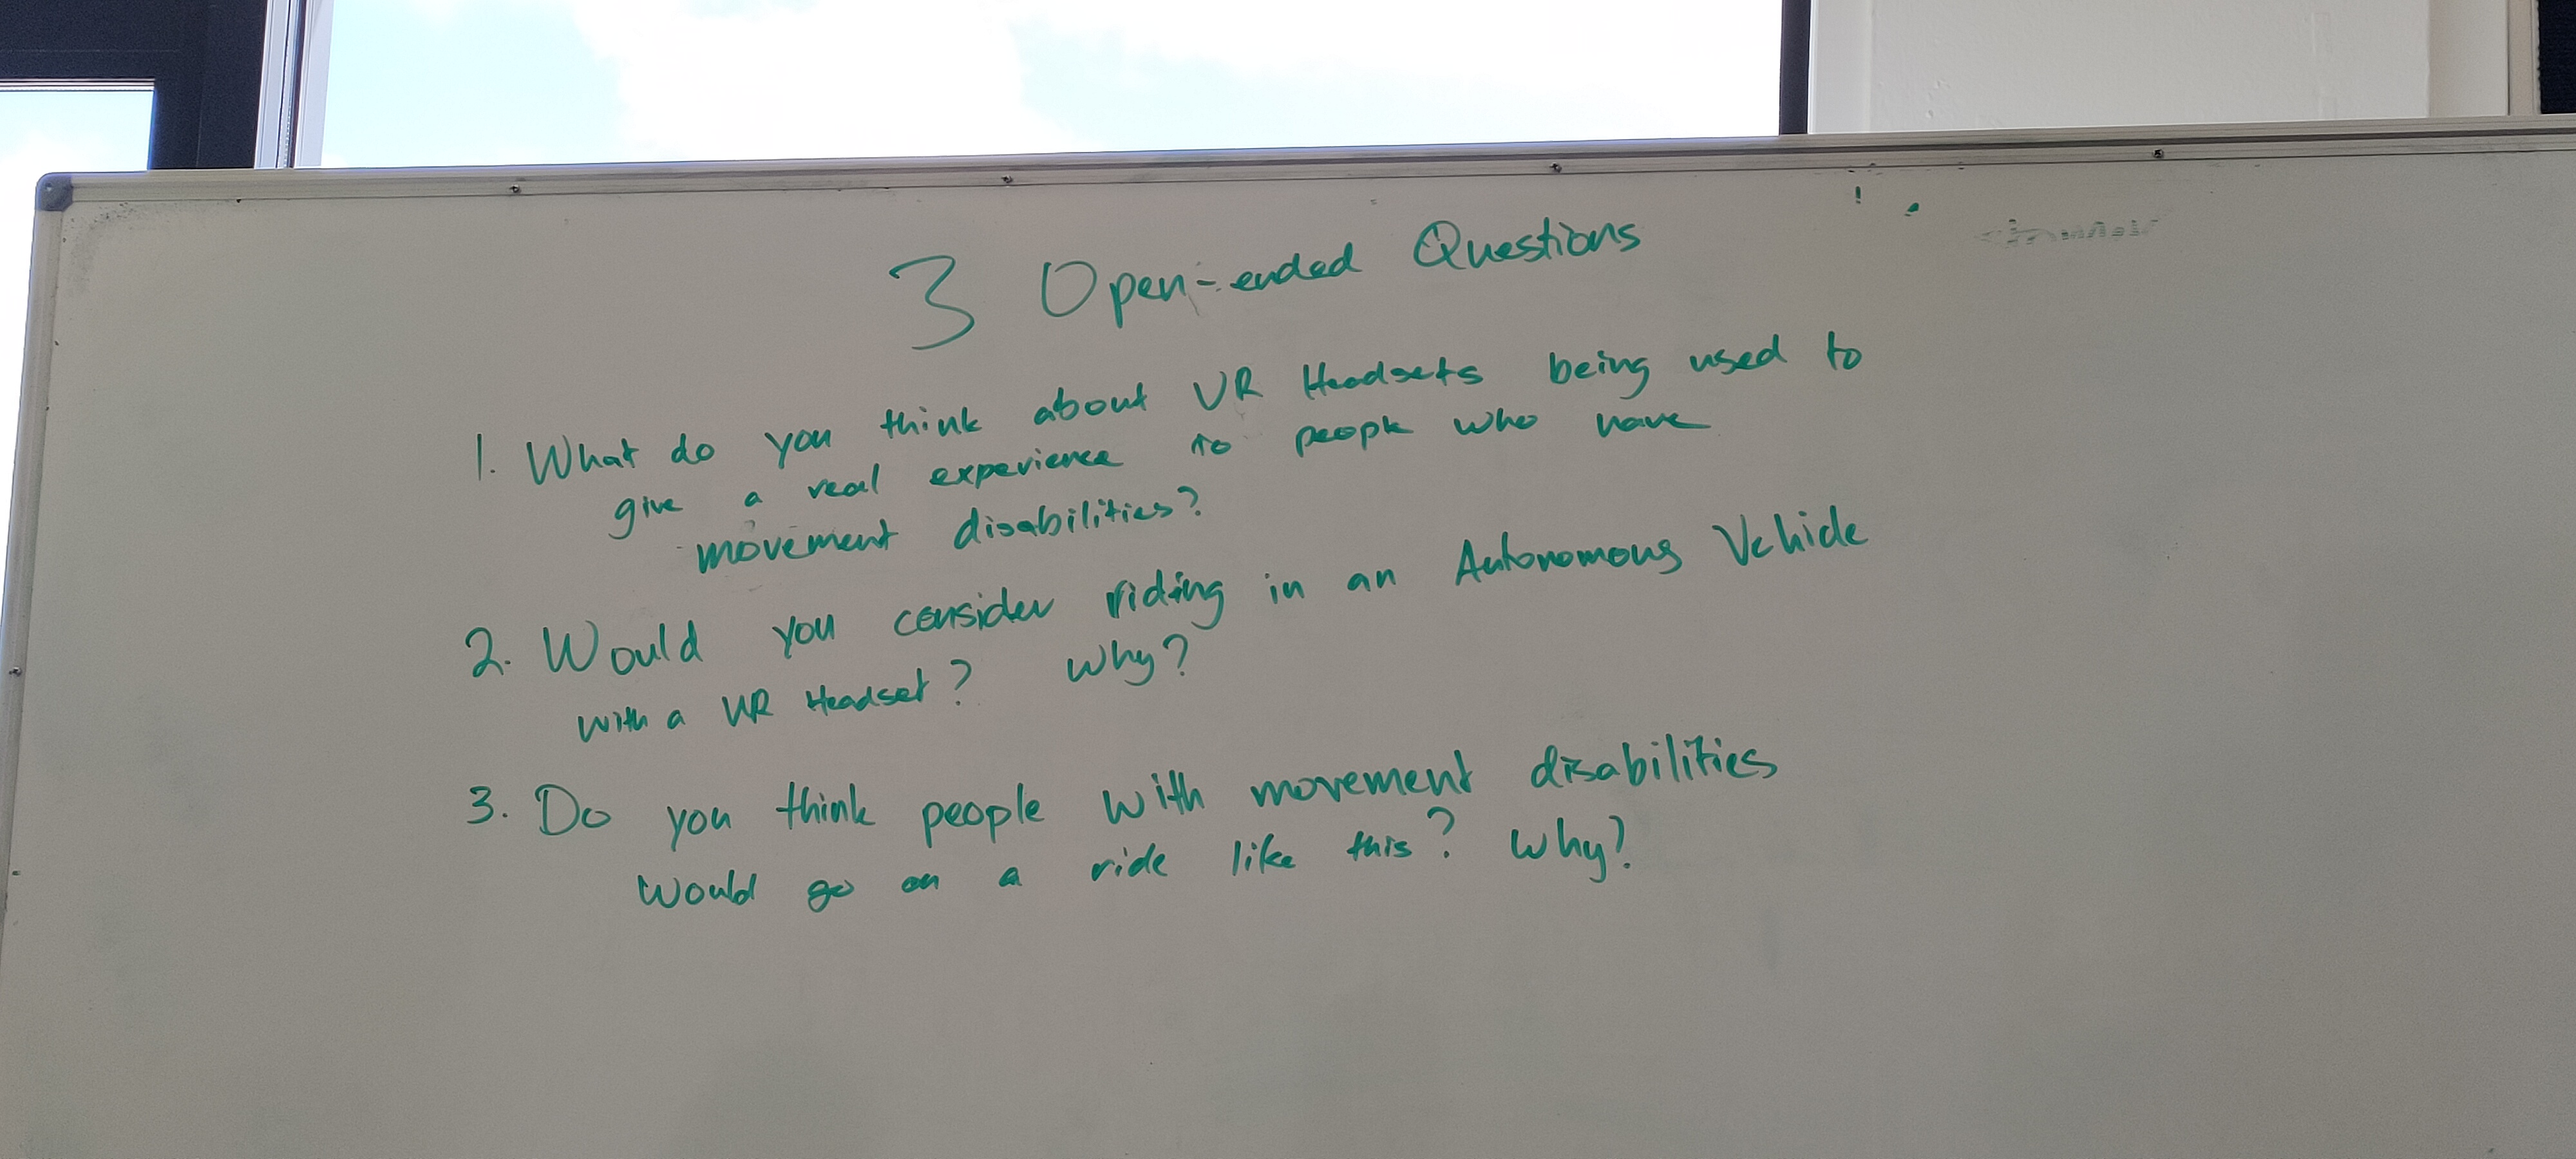 3 Open-ended Questions
1. What do you think about VR Headsets being used to
give a real experience to people who have
movement disabilities?
2. Would you consider riding in an Autonomous Vehicle
with a VR Headset? Why?
3. Do you think people with movement disabilities
would go on a ride like this? Why?